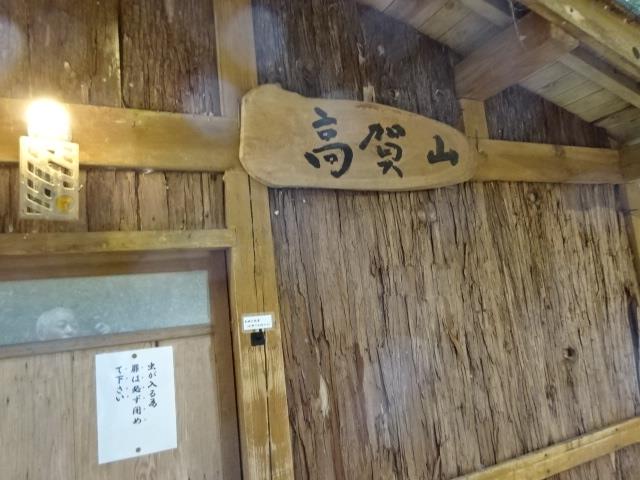 高賀山
虫が入る為
扉は必ず閉め
て下さい